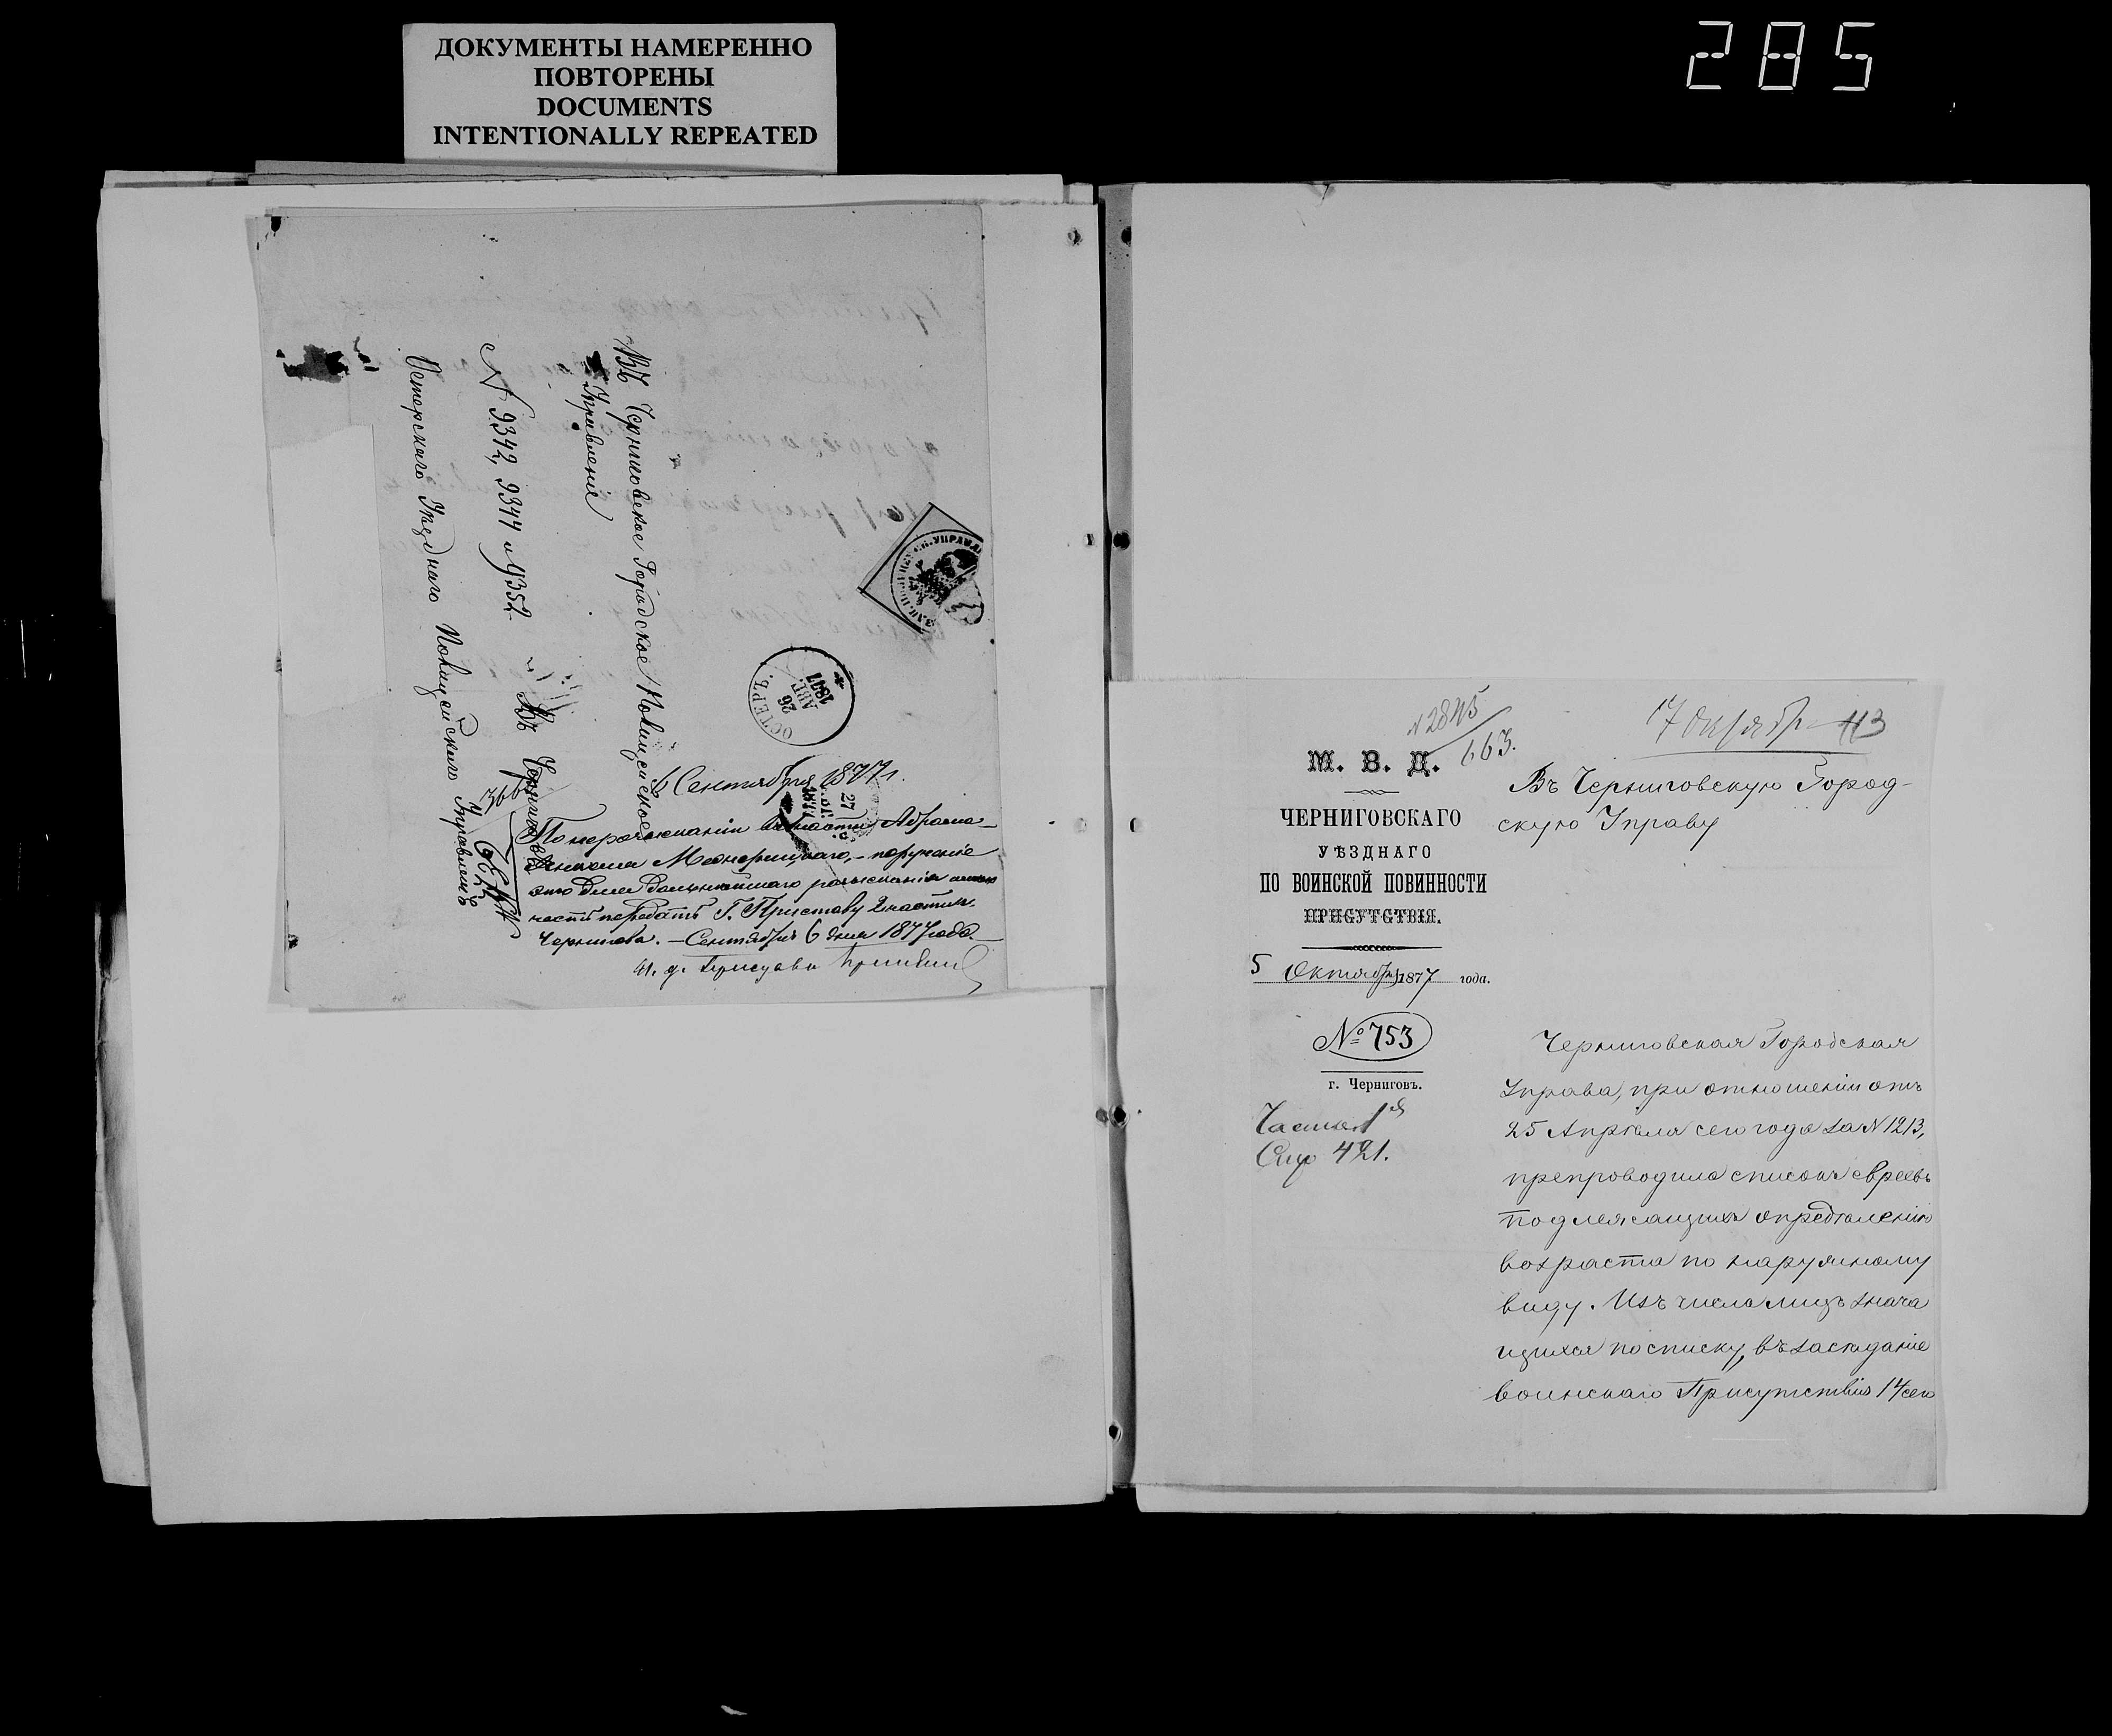 ДОКУМЕНТЫ НАМЕРЕННО
ПОВТОРЕНЫ
DOCUMENTS
INTENTIONALLY REPEATED
285
Въ Черниговское Городское Полицейское
Управленіе
N 9342, 9344 и 9352
Въ Черниговъ
Остерскаго Уѣзднаго Полицейскаго Управленія
ОСТЕРЪ.
26
АВГ.
1877
6 Сентября 1877 г.
По нерозысканіи въ 1 части Абрама
Медверицкаго, – порученіе
это для дальнѣйшаго розысканія
передать Г. Приставу 2 части г.
Чернигова. — Сентября 6 дня 1877 года.
И. д. Пристава
N 2845
663.
7 Октября
113
М. В. Д.
ЧЕРНИГОВСКАГО
УѢЗДНАГО
ПО ВОИНСКОЙ ПОВИННОСТИ
ПРИСУТСТВІЯ.
5 Октября 1877 года.
№ 753
г. Черниговъ.
Часть 1я
421.
Въ Черниговскую Город-
скую Управу
Черниговская Городская
Управа, при отношеніи отъ
25 Апрѣля сего года за N 1213,
препроводила списокъ евреевъ
подлежащихъ опредѣленію
возраста по наружному
виду. Изъ числа лицъ знача
щихся по списку, въ засѣданіе
воинскаго Присутствія 14 сего